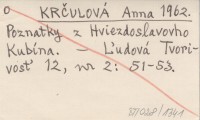 O KRČULOVÁ Anna 1962.
Poznatky z Hviezdoslavovho
Kubína. – Ľudová Tvori-
vosť 12, nr 2: 51-53.